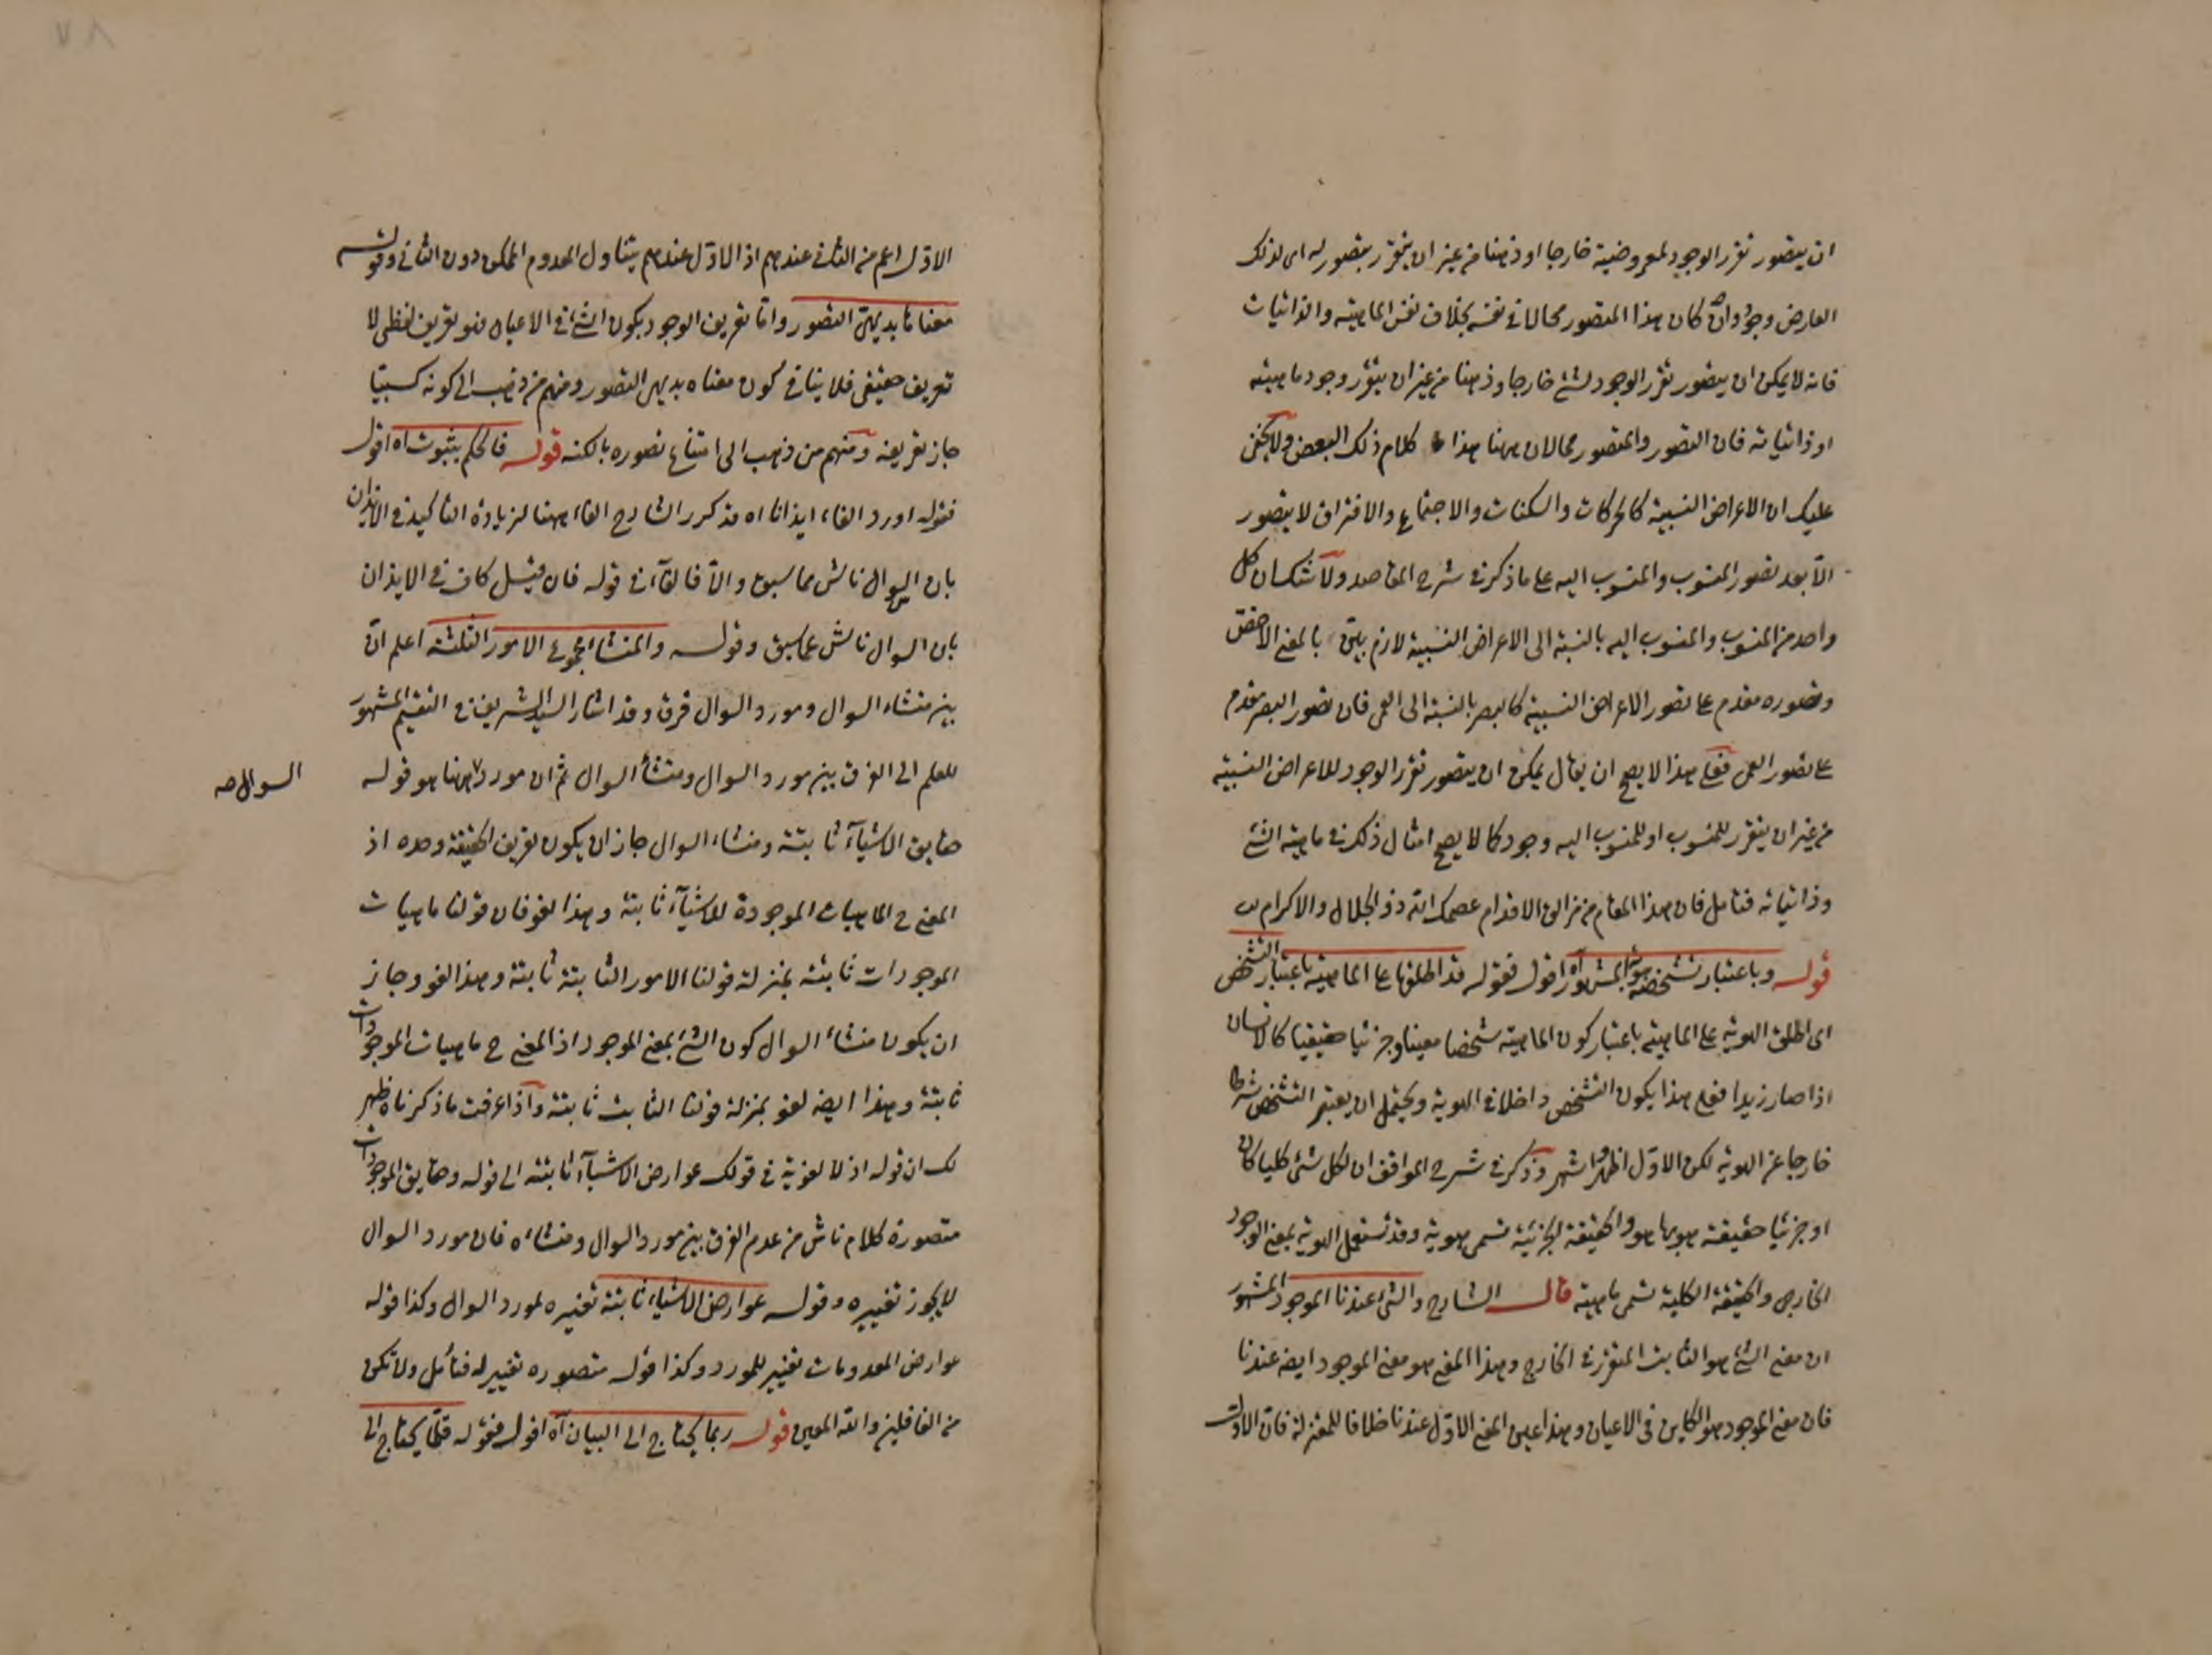 ان يتصور تقرر الوجود لمعروضية خارجا او ذهنا من غير ان يتقرر بتصور له اى لذلك
العارض وجود وان كان هذا المتصور محالا فى نفسه بخلاف نفس الماهية والذاتيات
فانه لا يمكن ان يتصور تقرر الوجود لشئ خارجا وذهنا من غير ان يتقرر وجود ماهيته
او ذاتياته فان التصور والمتصور محالان ههنا هذا كلام ذلك البعض ولا يخفى
عليك ان الاعراض النسبية كالحركات والسكنات والاجتماع والافتراق لا يتصور
الا بعد تصور المنسوب والمنسوب اليه على ما ذكر فى شرح المقاصد ولا شك ان كل
واحد من المنسوب والمنسوب اليه بالنسبة الى الاعراض النسبية لازم بين بالمعنى الاخص
وتصوره مقدم على تصور الاعراض النسبية كالبصر بالنسبة الى العمى فان تصور البصر مقدم
على تصور العمى فعلى هذا لا يصح ان يقال يمكن ان يتصور تقرر الوجود للاعراض النسبية
من غير ان يتقرر للمنسوب او للمنسوب اليه وجود كما لا يصح امثال ذلك فى ماهية الشئ
وذاتياته فتأمل فان هذا المقام من مزالق الاقدام عصمك الله ذو الجلال والاكرام
قوله وباعتبار تشخصه هوية المشهور اه اقول فقوله قد اطلقها على الماهية باعتبار التشخص
اى اطلق الهوية على الماهية باعتبار كون الماهية شخصا معينا وجزئيا حقيقيا كالانسان
اذا صار زيدا فعلى هذا يكون التشخص داخلا فى الهوية ويحتمل ان يعتبر التشخص شرطا
خارجا عن الهوية لكن الاول اظهر واشهر وذكر فى شرح المواقف ان لكل شئ كليا كان
او جزئيا حقيقة هو بها هو والحقيقة الجزئية تسمى هوية وقد تستعمل الهوية بمعنى الوجود
الخارجى والحقيقة الكلية تسمى ماهية قال الشارح والشئ عندنا الموجود المشهور
ان معنى الشئ هو الثابت المتقرر فى الخارج وهذا المعنى هو معنى الموجود ايضه عندنا
فان معنى الموجود هو الكاين فى الاعيان وهذا عين المعنى الاول عندنا خلافا للمعتزلة فان الاول
الاول اعم من الثانى عندهم اذ الاول عندهم يتناول المعدوم الممكن دون الثانى وقوله
معناها بديهى التصور واما تعريف الوجود بكون الشئ فى الاعيان فهو تعريف لفظى لا
تعريف حقيقى فلا ينافى كون معناه بديهى التصور ومنهم من ذهب الى كونه كسبيا
جاز تعريفه ومنهم من ذهب الى امتناع تصوره بالكنه قوله فالحكم بثبوت اه اقول
فقوله اورد الفاء ايذانا اه قد كرر الشارح الفاء ههنا لزيادة التأكيد فى الايذان
بان السوال ناش مما سبق والا فالفآء فى قوله فان قيل كاف فى الايذان
بان السوال ناش عما سبق وقوله والمنشاء مجموع الامور الثلثة اعلم ان
بين منشاء السوال ومورد السوال فرق وقد اشار السيد الشريف فى التقسيم المشهور
للعلم الى الفرق بين مورد السوال ومنشأ السوال ثم ان مورد ههنا هو قوله
السوال صه
حقايق الاشيآء ثابتة ومنشاء السوال جاز ان يكون تعريف الحقيقة وحده اذ
المعنى ح الماهيات الموجودة للاشيآء ثابتة وهذا لغو فان قولنا ماهيات
الموجودات ثابتة بمنزلة قولنا الامور الثابتة ثابتة وهذا لغو وجاز
ان يكون منشاء السوال كون الشئ بمعنى الموجود اذ المعنى ح ماهيات الموجودات
ثابتة وهذا ايضه لغو بمنزلة قولنا الثابت ثابتة واذا عرفت ما ذكرناه ظهر
لك ان قوله اذ لا لغوية فى قولك عوارض الاشيآء ثابتة الى قوله وحقايق الموجودات
متصورة كلام ناش من عدم الفرق بين مورد السوال ومنشاءه فان مورد السوال
لا يجوز تغييره وقوله عوارض الاشياء ثابتة تغييره لمورد السوال وكذا قوله
عوارض المعدومات تغيير للمورد وكذا قوله متصوره تغيير له فتأمل ولا تكن
من الغافلين والله المعين قوله ربما يحتاج الى البيان اه اقول فقوله قلما يحتاج الى